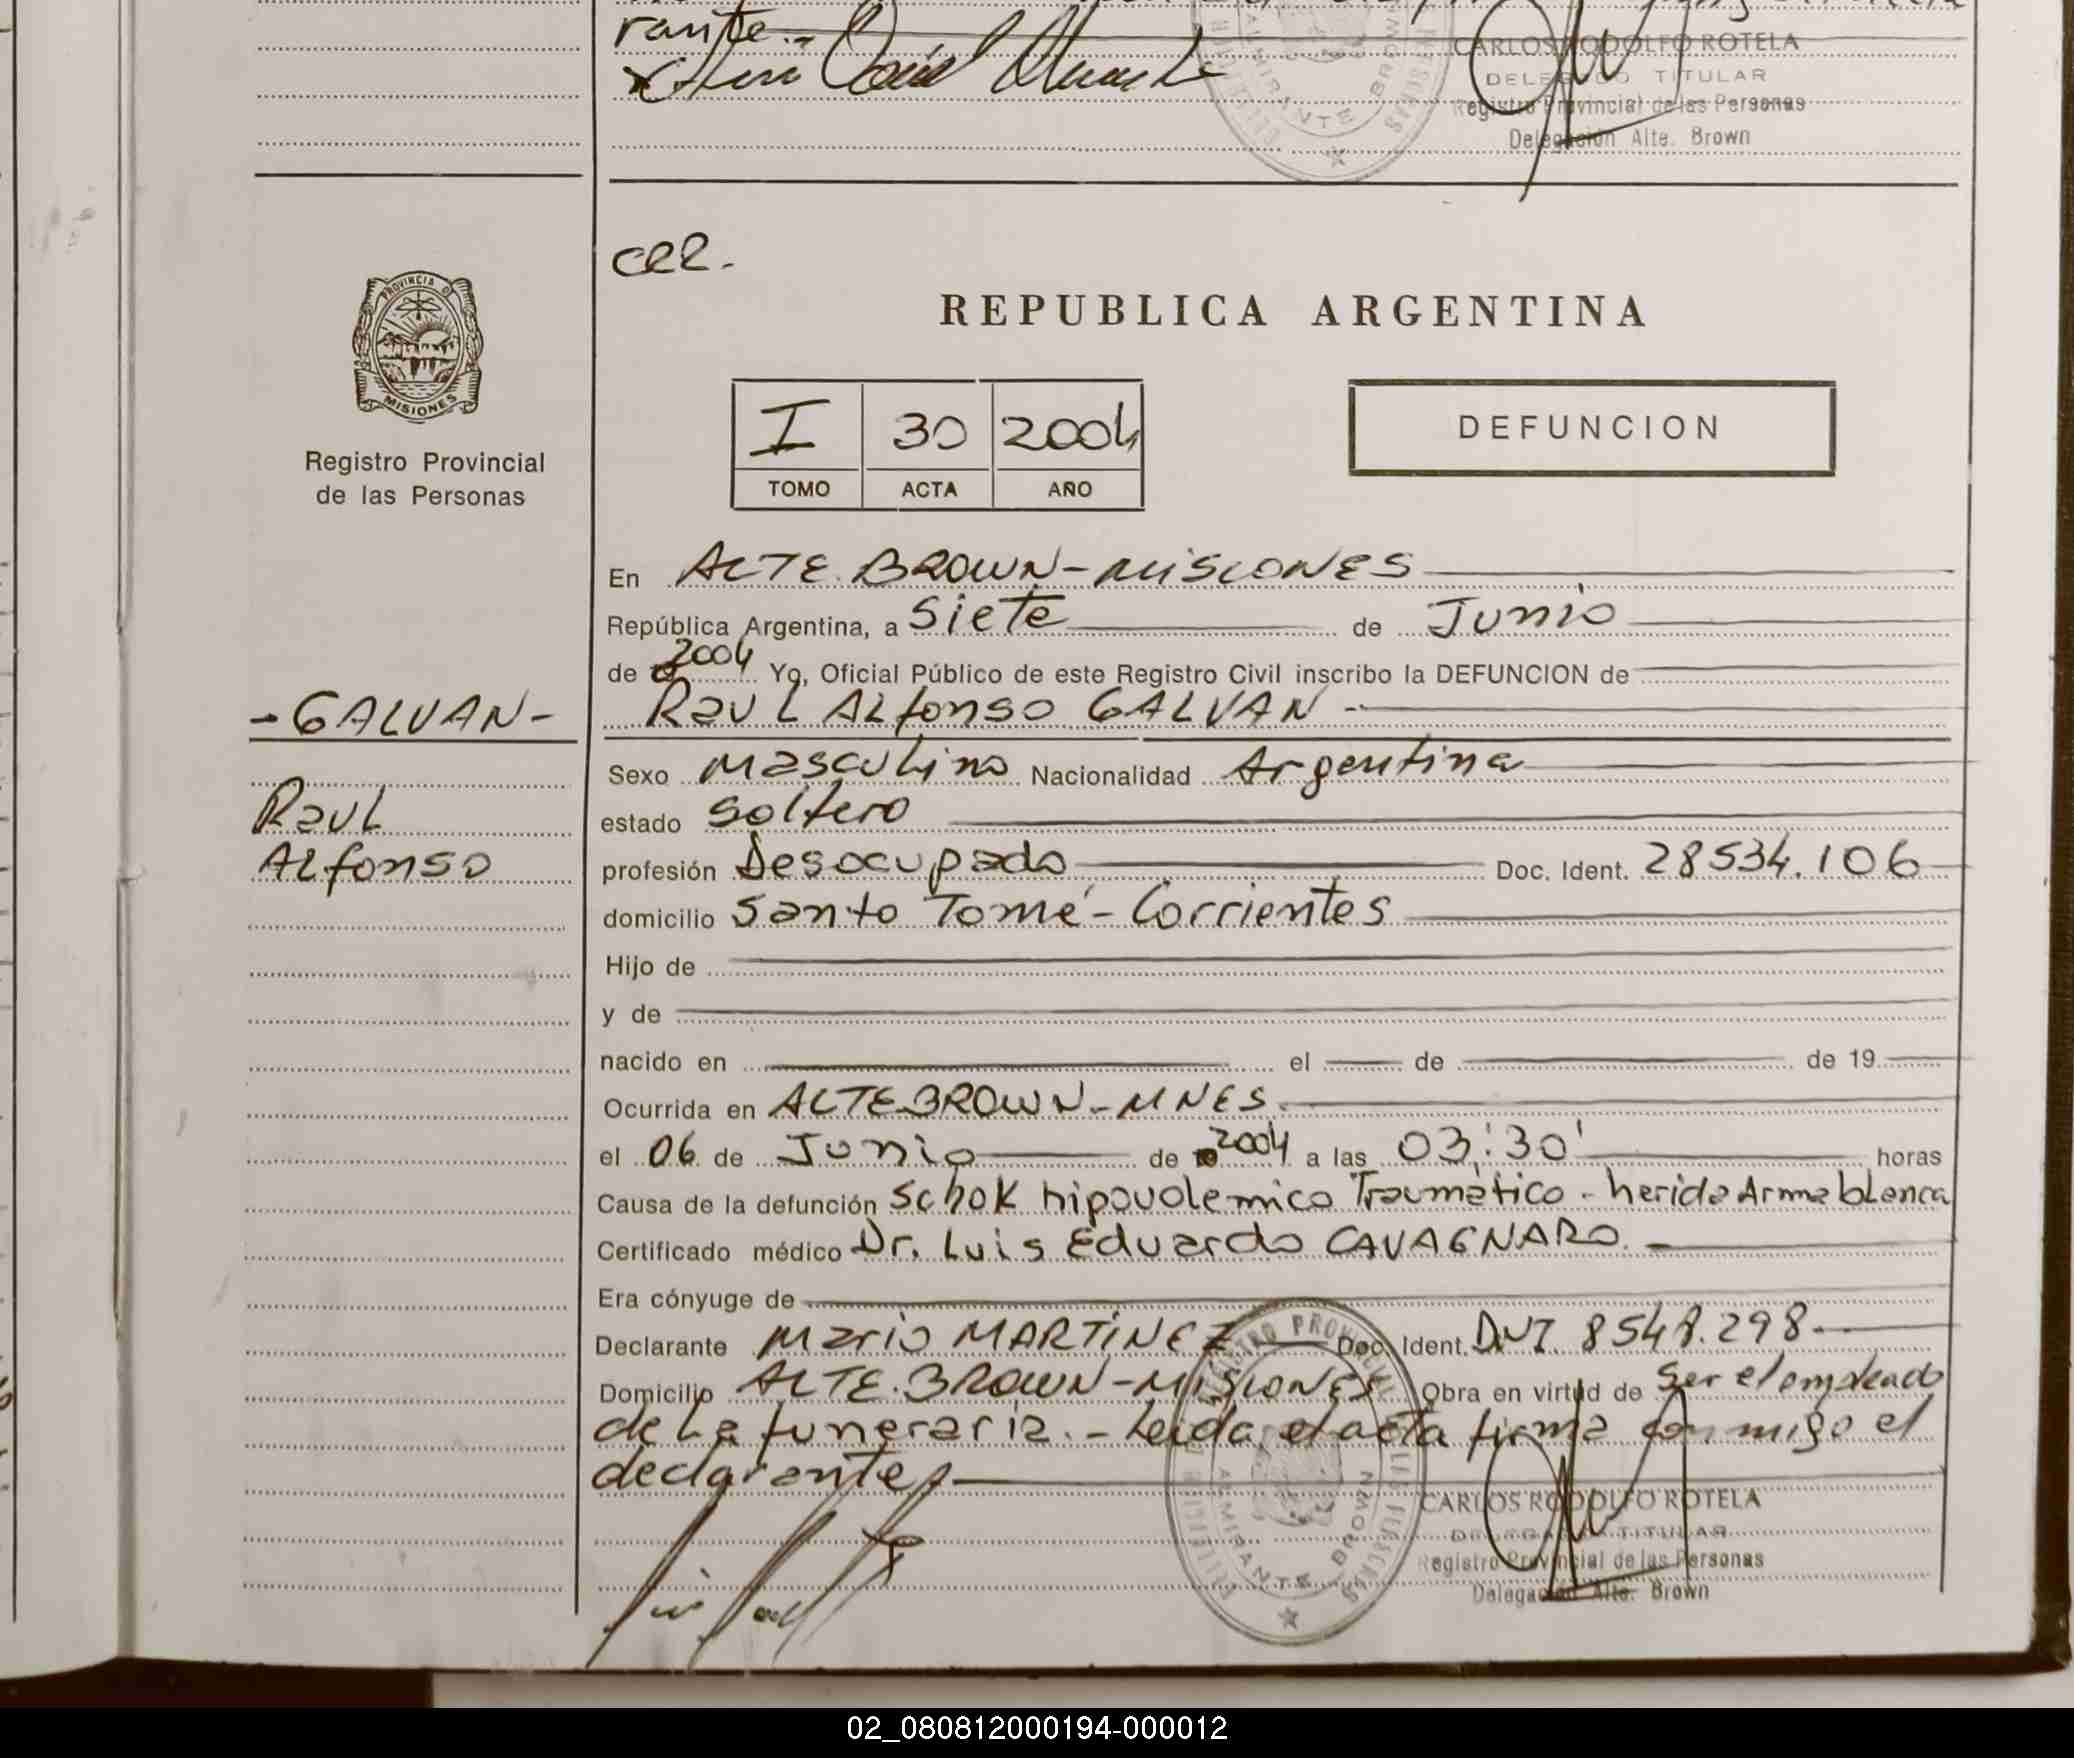 rante.-
CARLOS RODOLFO ROTELA
DELEGADO TITULAR
Registro Provincial de las Personas
Delegación Alte. Brown
ALMIRANTE BROWN
PROVINCIA D
MISIONES
Registro Provincial
de las Personas
REPUBLICA ARGENTINA
I 30 2004
TOMO ACTA AÑO
DEFUNCION
En ALTE. BROWN-MISIONES
República Argentina, a Siete de Junio
de 2004 Yo, Oficial Público de este Registro Civil inscribo la DEFUNCION de
-GALVAN-
Raul ALfonso GALVAN-
Sexo Masculino Nacionalidad Argentina
Raul
estado Soltero
ALfonso
profesión Desocupado Doc. Ident. 28534.106
domicilio Santo Tomé-Corrientes
Hijo de
y de
nacido en el de de 19
Ocurrida en ALTE BROWN-MNES.
el 06 de Junio de 2004 a las 03:30' horas
Causa de la defunción Schok hipovolemico Traumatico - herida Arma blanca
Certificado médico Dr. Luis Eduardo CAVAGNARO.-
Era cónyuge de
Declarante Mario MARTINEZ Doc. Ident. DNI. 8548.298-
Domicilio ALTE. BROWN-MISIONES Obra en virtud de Ser el empleado
de La funeraria.- Leida el acta firma con migo el
declarante
CARLOS RODOLFO ROTELA
DELEGADO TITULAR
Registro Provincial de las Personas
Delegación Alte. Brown
ALMIRANTE BROWN
02_080812000194-000012